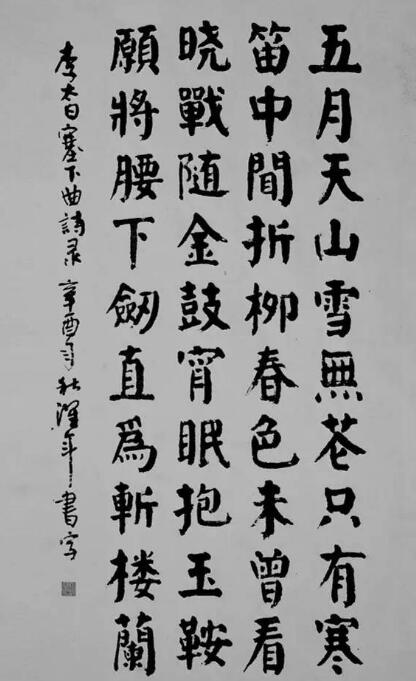 五月天山雪無花只有寒
笛中聞折柳春色未曾看
晓戰随金鼓宵眠抱玉鞍
願將腰下劔直為斬楼蘭
李太白塞下曲詩录 辛酉年秋 年書字